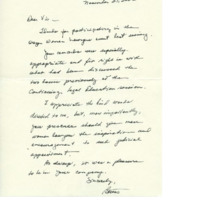 Thanks for participating in the
women lawyers event last evening.
Your remarks were especially
appropriate and fit right in with
what had been discussed the
two hours previously at the
Continuing Legal Education session.
I appreciate the kind words
directed to me, but, more importantly,
your presence should give
women lawyers the inspiration and
encouragement to seek judicial
appointment.
As always, it was a pleasure
to be in your company.
Sincerely,